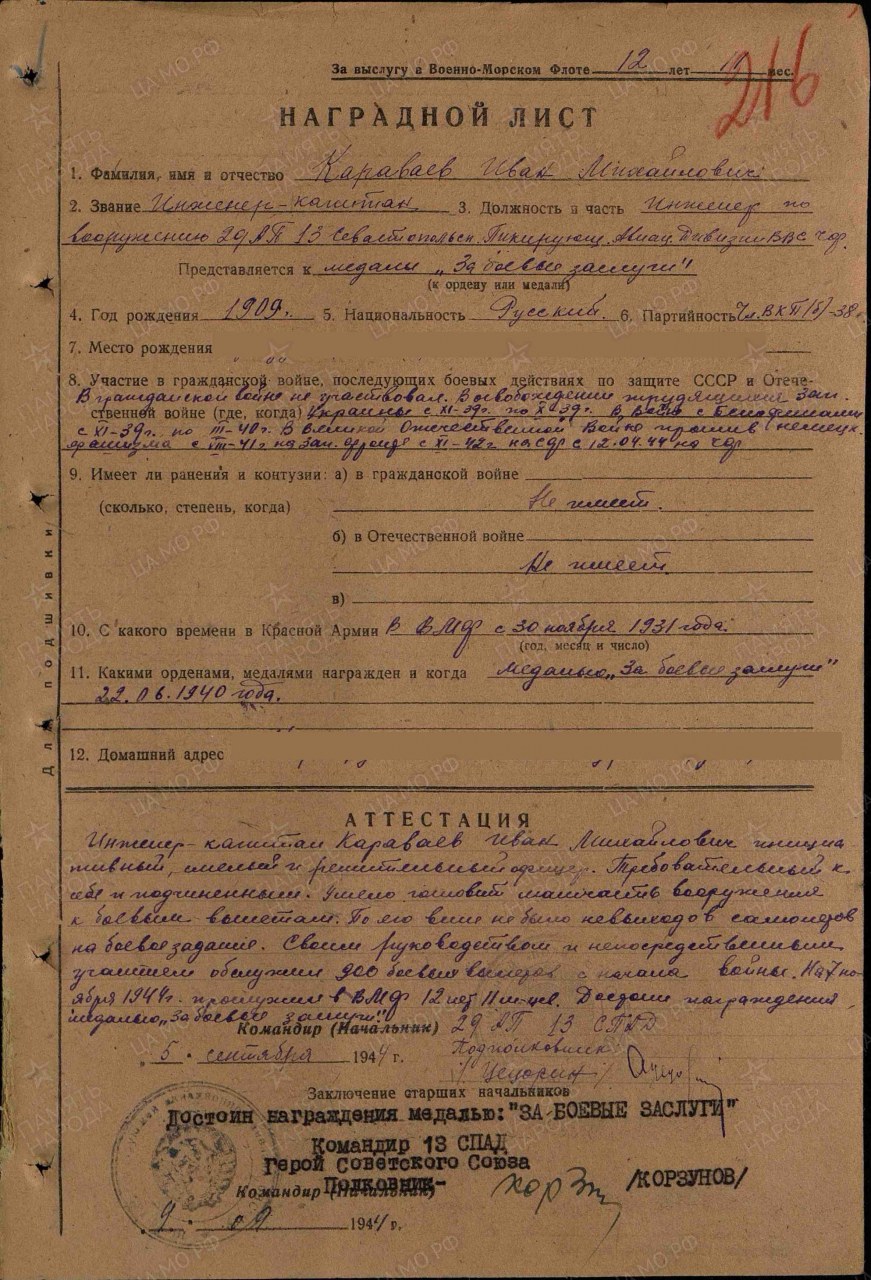 За выслугу в Военно-Морском Флоте 12 лет 11 мес.
216
НАГРАДНОЙ ЛИСТ
1. Фамилия, имя и отчество Караваев Иван Михайлович
2. Звание Инженер-капитан 3. Должность и часть Инженер по
вооружению 29 АП 13 Севастопольск. Пикирующ. Авиац. Дивизии ВВС ЧФ.
Представляется к медали „За боевые заслуги"
(к ордену или медали)
4. Год рождения 1909г. 5. Национальность Русский. 6. Партийность Чл. ВКП(б)-38г
7. Место рождения
8. Участие в гражданской войне, последующих боевых действиях по защите СССР и Отече-
В гражданской войне не участвовал. В освобождении трудящихся Зап.
ственной войне (где, когда) Украины с XI-39г. по X-39г. В войне с Белофиннами
с XI-39г. по III-40г. В Великой Отечественной Войне против немецк.
фашизма с VIII-41г на Зап. фронте с XI-42г на СФ с 12.04.44 на ЧФ
9. Имеет ли ранения и контузии: а) в гражданской войне
(сколько, степень, когда) Не имеет.
б) в Отечественной войне
Не имеет.
в)
10. С какого времени в Красной Армии В ВМФ с 30 ноября 1931 года.
(год, месяц и число)
11. Какими орденами, медалями награжден и когда Медалью „За боевые заслуги"
22.06.1940 года.
12. Домашний адрес
Для подшивки
АТТЕСТАЦИЯ
Инженер-капитан Караваев Иван Михайлович инициа-
тивный, смелый и решительный офицер. Требовательный к
себе и подчиненным. Умело готовит матчасть вооружения
к боевым вылетам. По его вине не было невыходов самолетов
на боевое задание. Своим руководством и непосредственным
участием обслужил 900 боевых вылетов с начала войны. На 7 но-
ября 1944г. прослужил в ВМФ 12 лет 11 м-цев. Достоин награждения
медалью „За боевые заслуги".
Командир (Начальник) 29 АП 13 СПАД
5. сентября 1944 г. Подполковник
/Цецорин/
Заключение старших начальников
Достоин награждения медалью: "ЗА БОЕВЫЕ ЗАСЛУГИ"
Командир 13 СПАД
Герой Советского Союза
Полковник-
Командир (Начальник) /КОРЗУНОВ/
9. 09 1944 г.
ЦАМО.РФ
ПАМЯТЬ НАРОДА